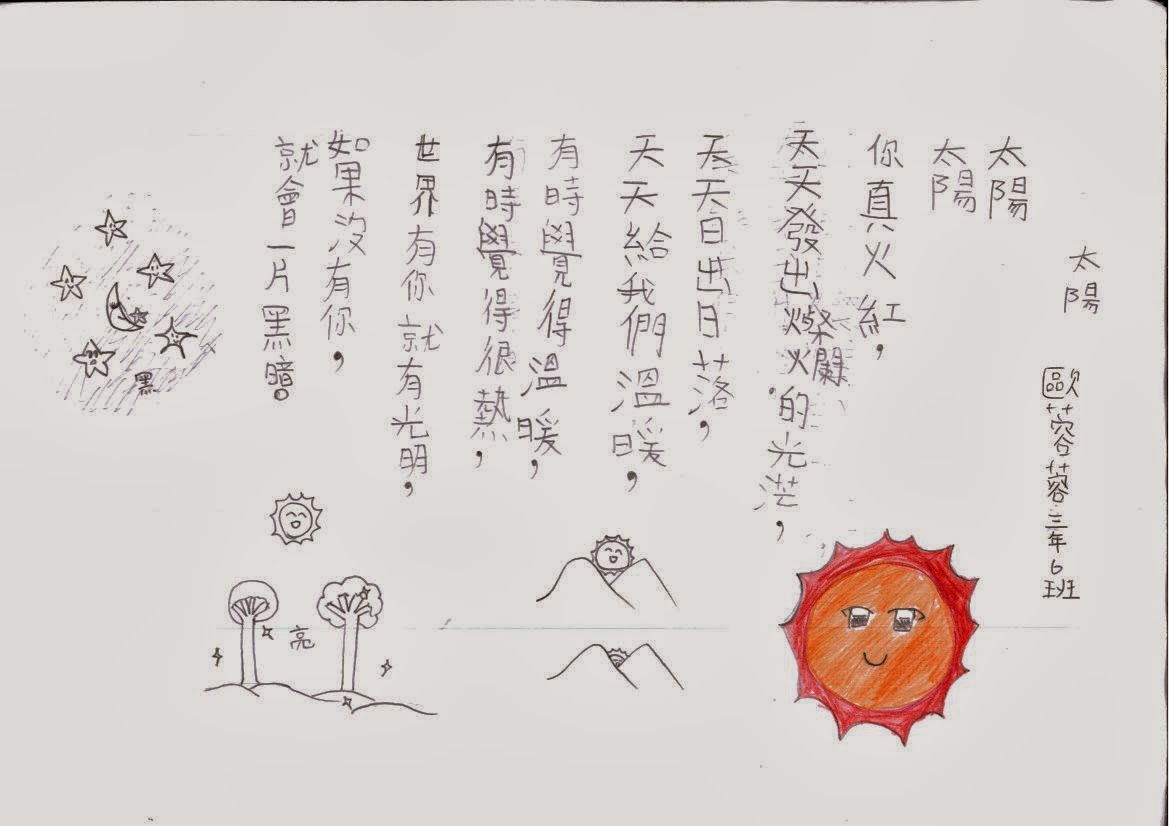 太陽
歐蓉蓉三年6班
太陽
太陽
你真火紅，
天天發出燦爛的光茫，
天天日出日落，
天天給我們溫暖，
有時覺得溫暖，
有時覺得很熱，
世界有你就有光明，
如果沒有你，
就會一片黑暗。
黑
亮